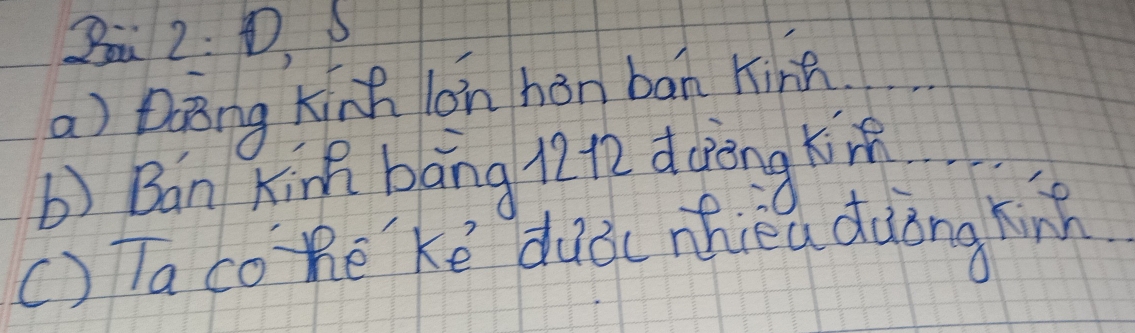 Bài 2: Đ, S
a) Đường kính lớn hơn bán kính.....
b) Bán kính bằng 1212 đường kính.....
c) Ta có thể kẻ được nhiều đường kính..